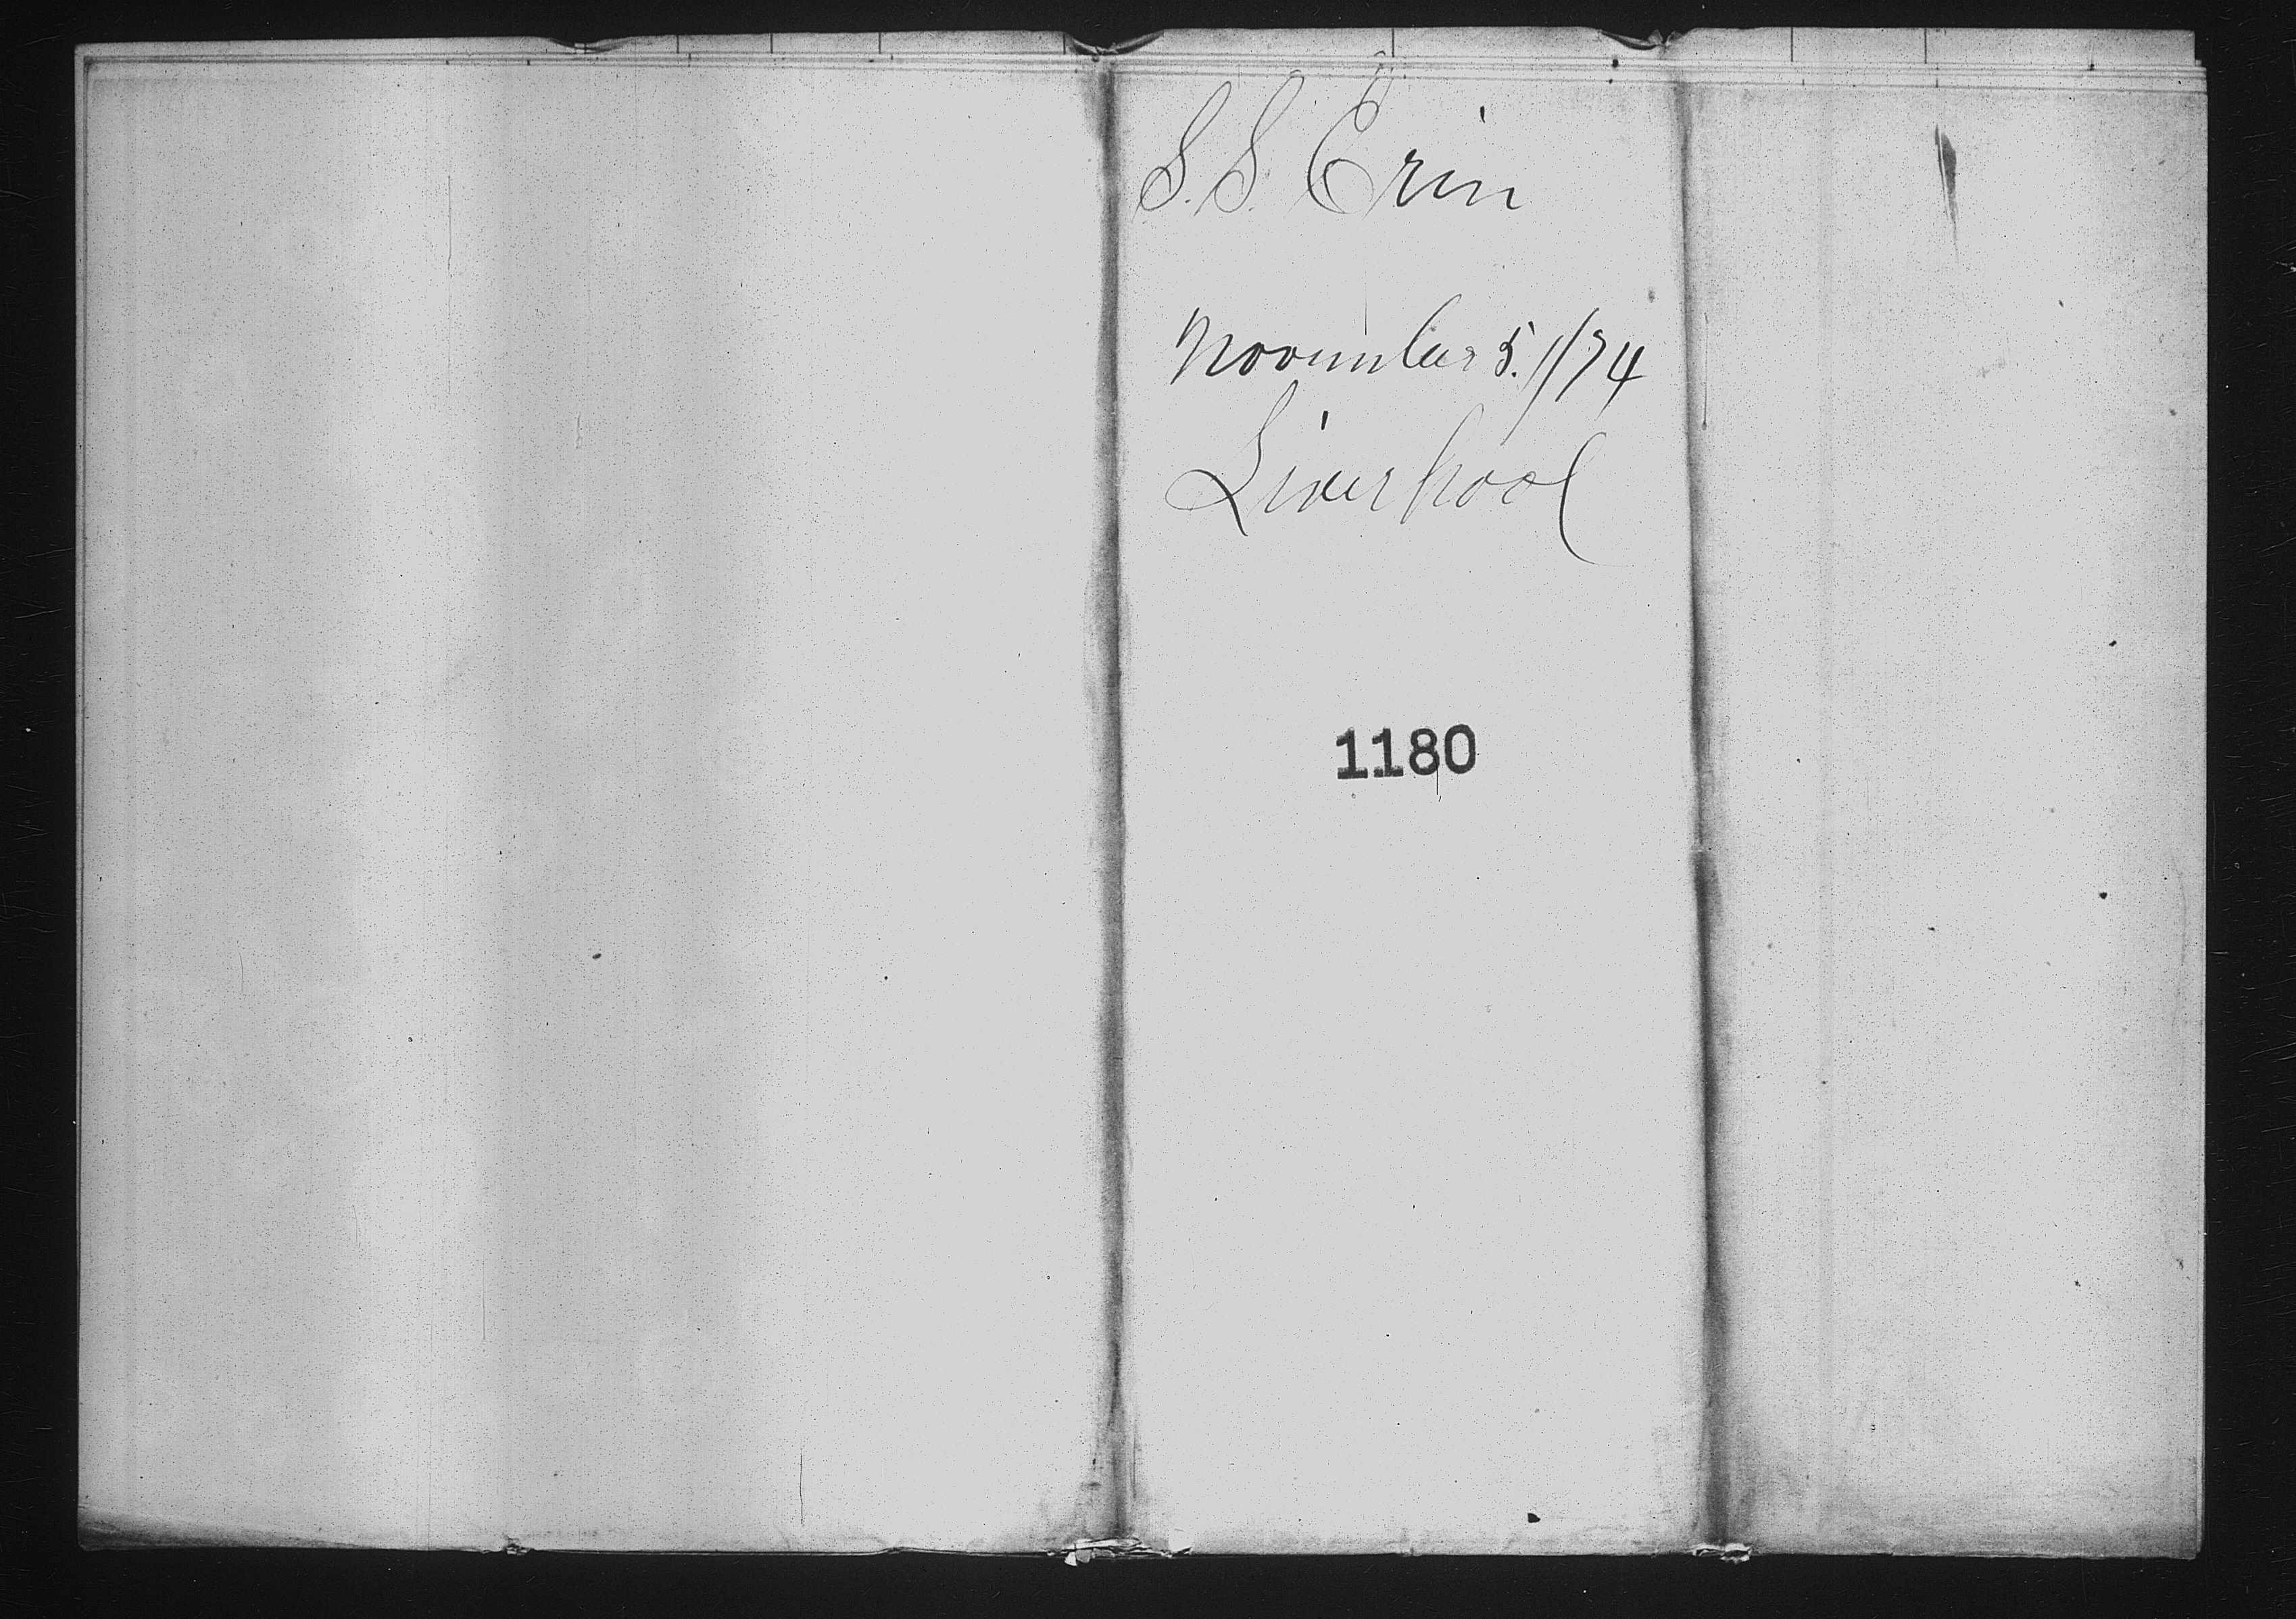 S.S. Erin
November 5./74
Liverpool
1180